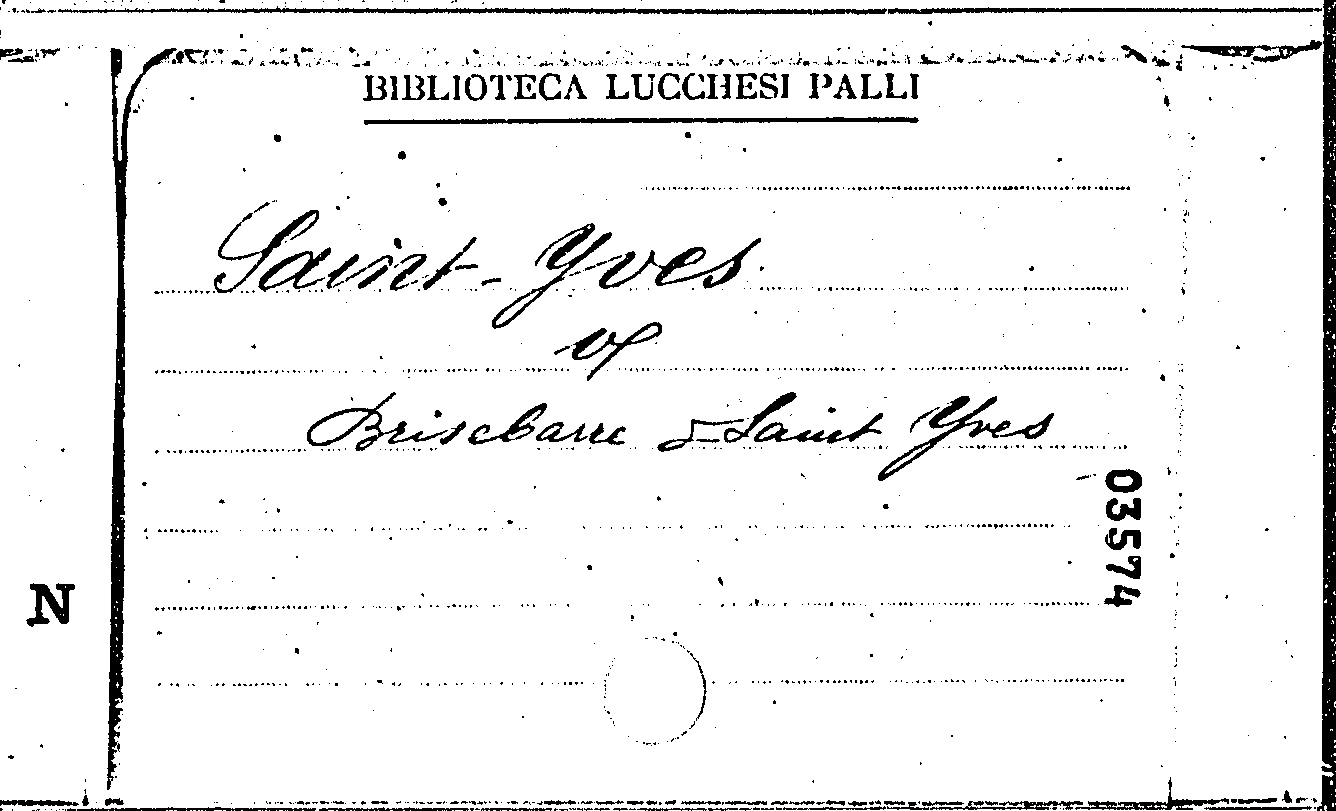 BIBLIOTECA LUCCHESI PALLI
Saint-Yves
Brisebarre & Saint Yves
03574
N